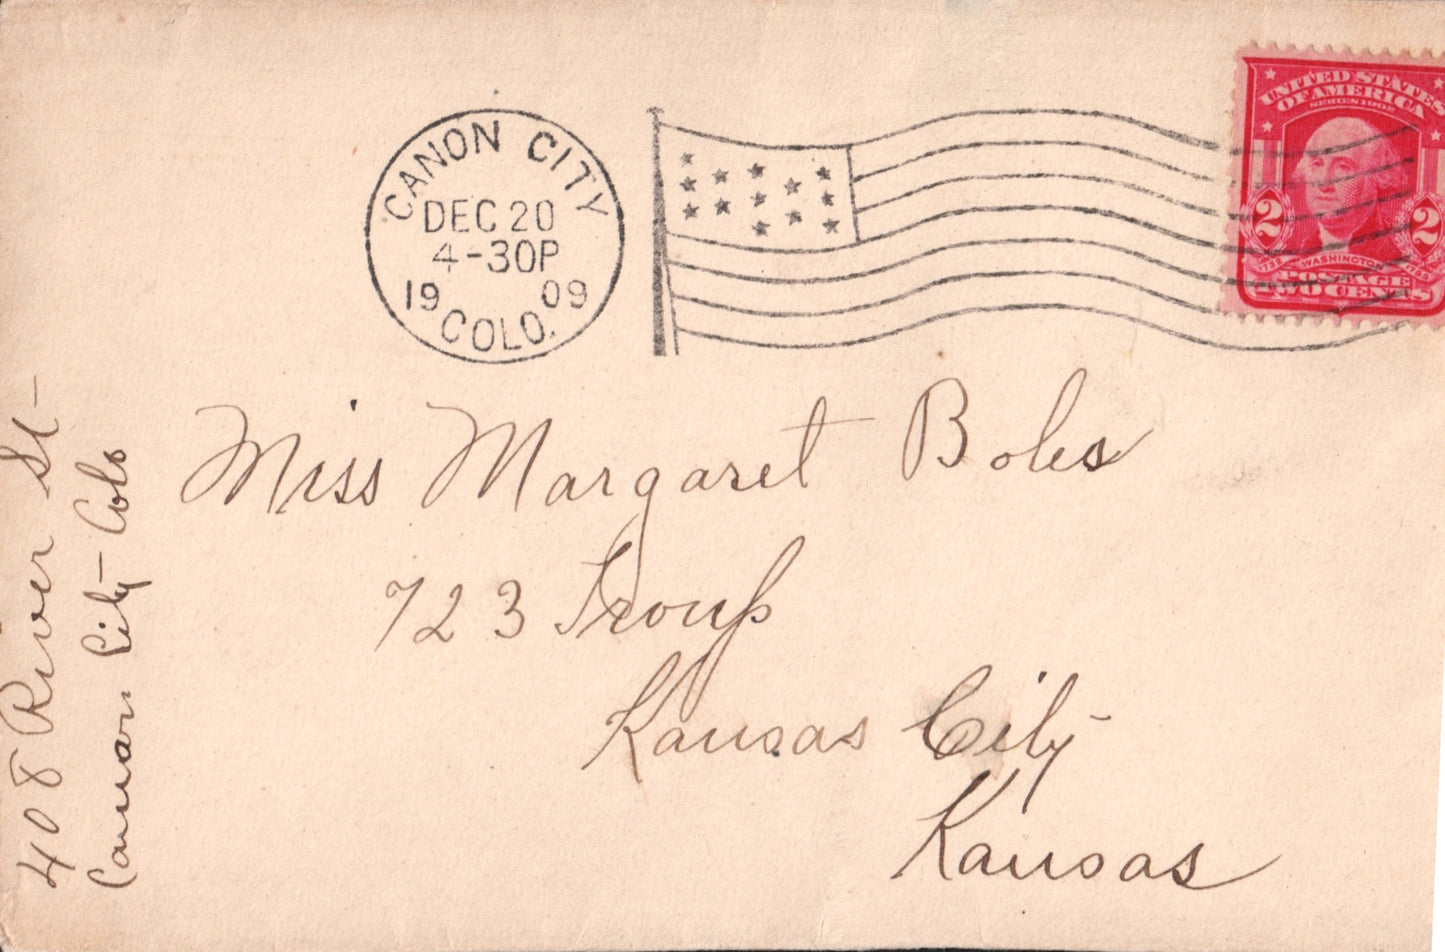 CANON CITY
DEC 20
4-30P
1909
COLO.
UNITED STATES
OF AMERICA
SERIES 1902
2 2
1732 WASHINGTON 1799
POSTAGE
TWO CENTS
Miss Margaret Boles
723 Troup
Kansas City
Kansas
408 River St-
Canon City - Colo